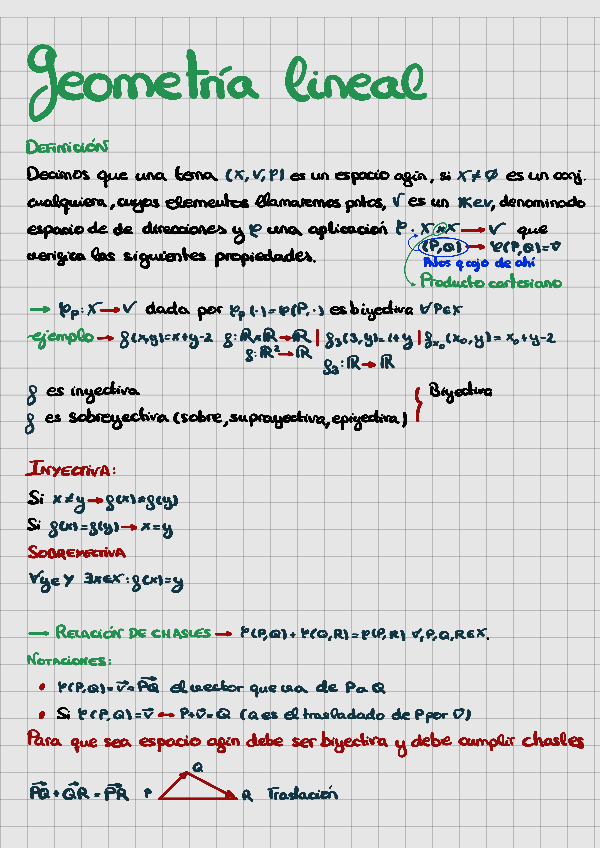 Geometría lineal
DEFINICIÓN
Decimos que una terna (X,V,φ) es un espacio afín, si X≠∅ es un conj.
cualquiera, cuyos elementos llamaremos pntos, V es un Kev, denominado
espacio de de direcciones y φ una aplicación φ: X×X → V que
verifica las siguientes propiedades.
(P,Q) → φ(P,Q)=v̄
Ptos q cojo de ahí
Producto cartesiano
→ φ_P: X → V dada por φ_P(·)=φ(P,·) es biyectiva ∀P∈X
ejemplo → f(x,y)=x+y-2 f:ℝ×ℝ→ℝ | f₃(3,y)=1+y | f_x₀(x₀,y)=x₀+y-2
f:ℝ²→ℝ f₃:ℝ→ℝ
f es inyectiva
f es sobreyectiva (sobre, suprayectiva, epiyectiva) } Biyectiva
INYECTIVA:
Si x≠y → f(x)≠f(y)
Si f(x)=f(y) → x=y
SOBREYECTIVA
∀y∈Y ∃x∈X: f(x)=y
→ RELACIÓN DE CHASLES → φ(P,Q)+φ(Q,R)=φ(P,R) ∀,P,Q,R∈X.
NOTACIONES:
• φ(P,Q)=v⃗=PQ⃗ el vector que va de P a Q
• Si φ(P,Q)=v⃗ ↔ P+v̄=Q (Q es el trasladado de P por v̄)
Para que sea espacio afín debe ser biyectiva y debe cumplir chasles
PQ⃗+QR⃗=PR⃗ P Q R Traslación